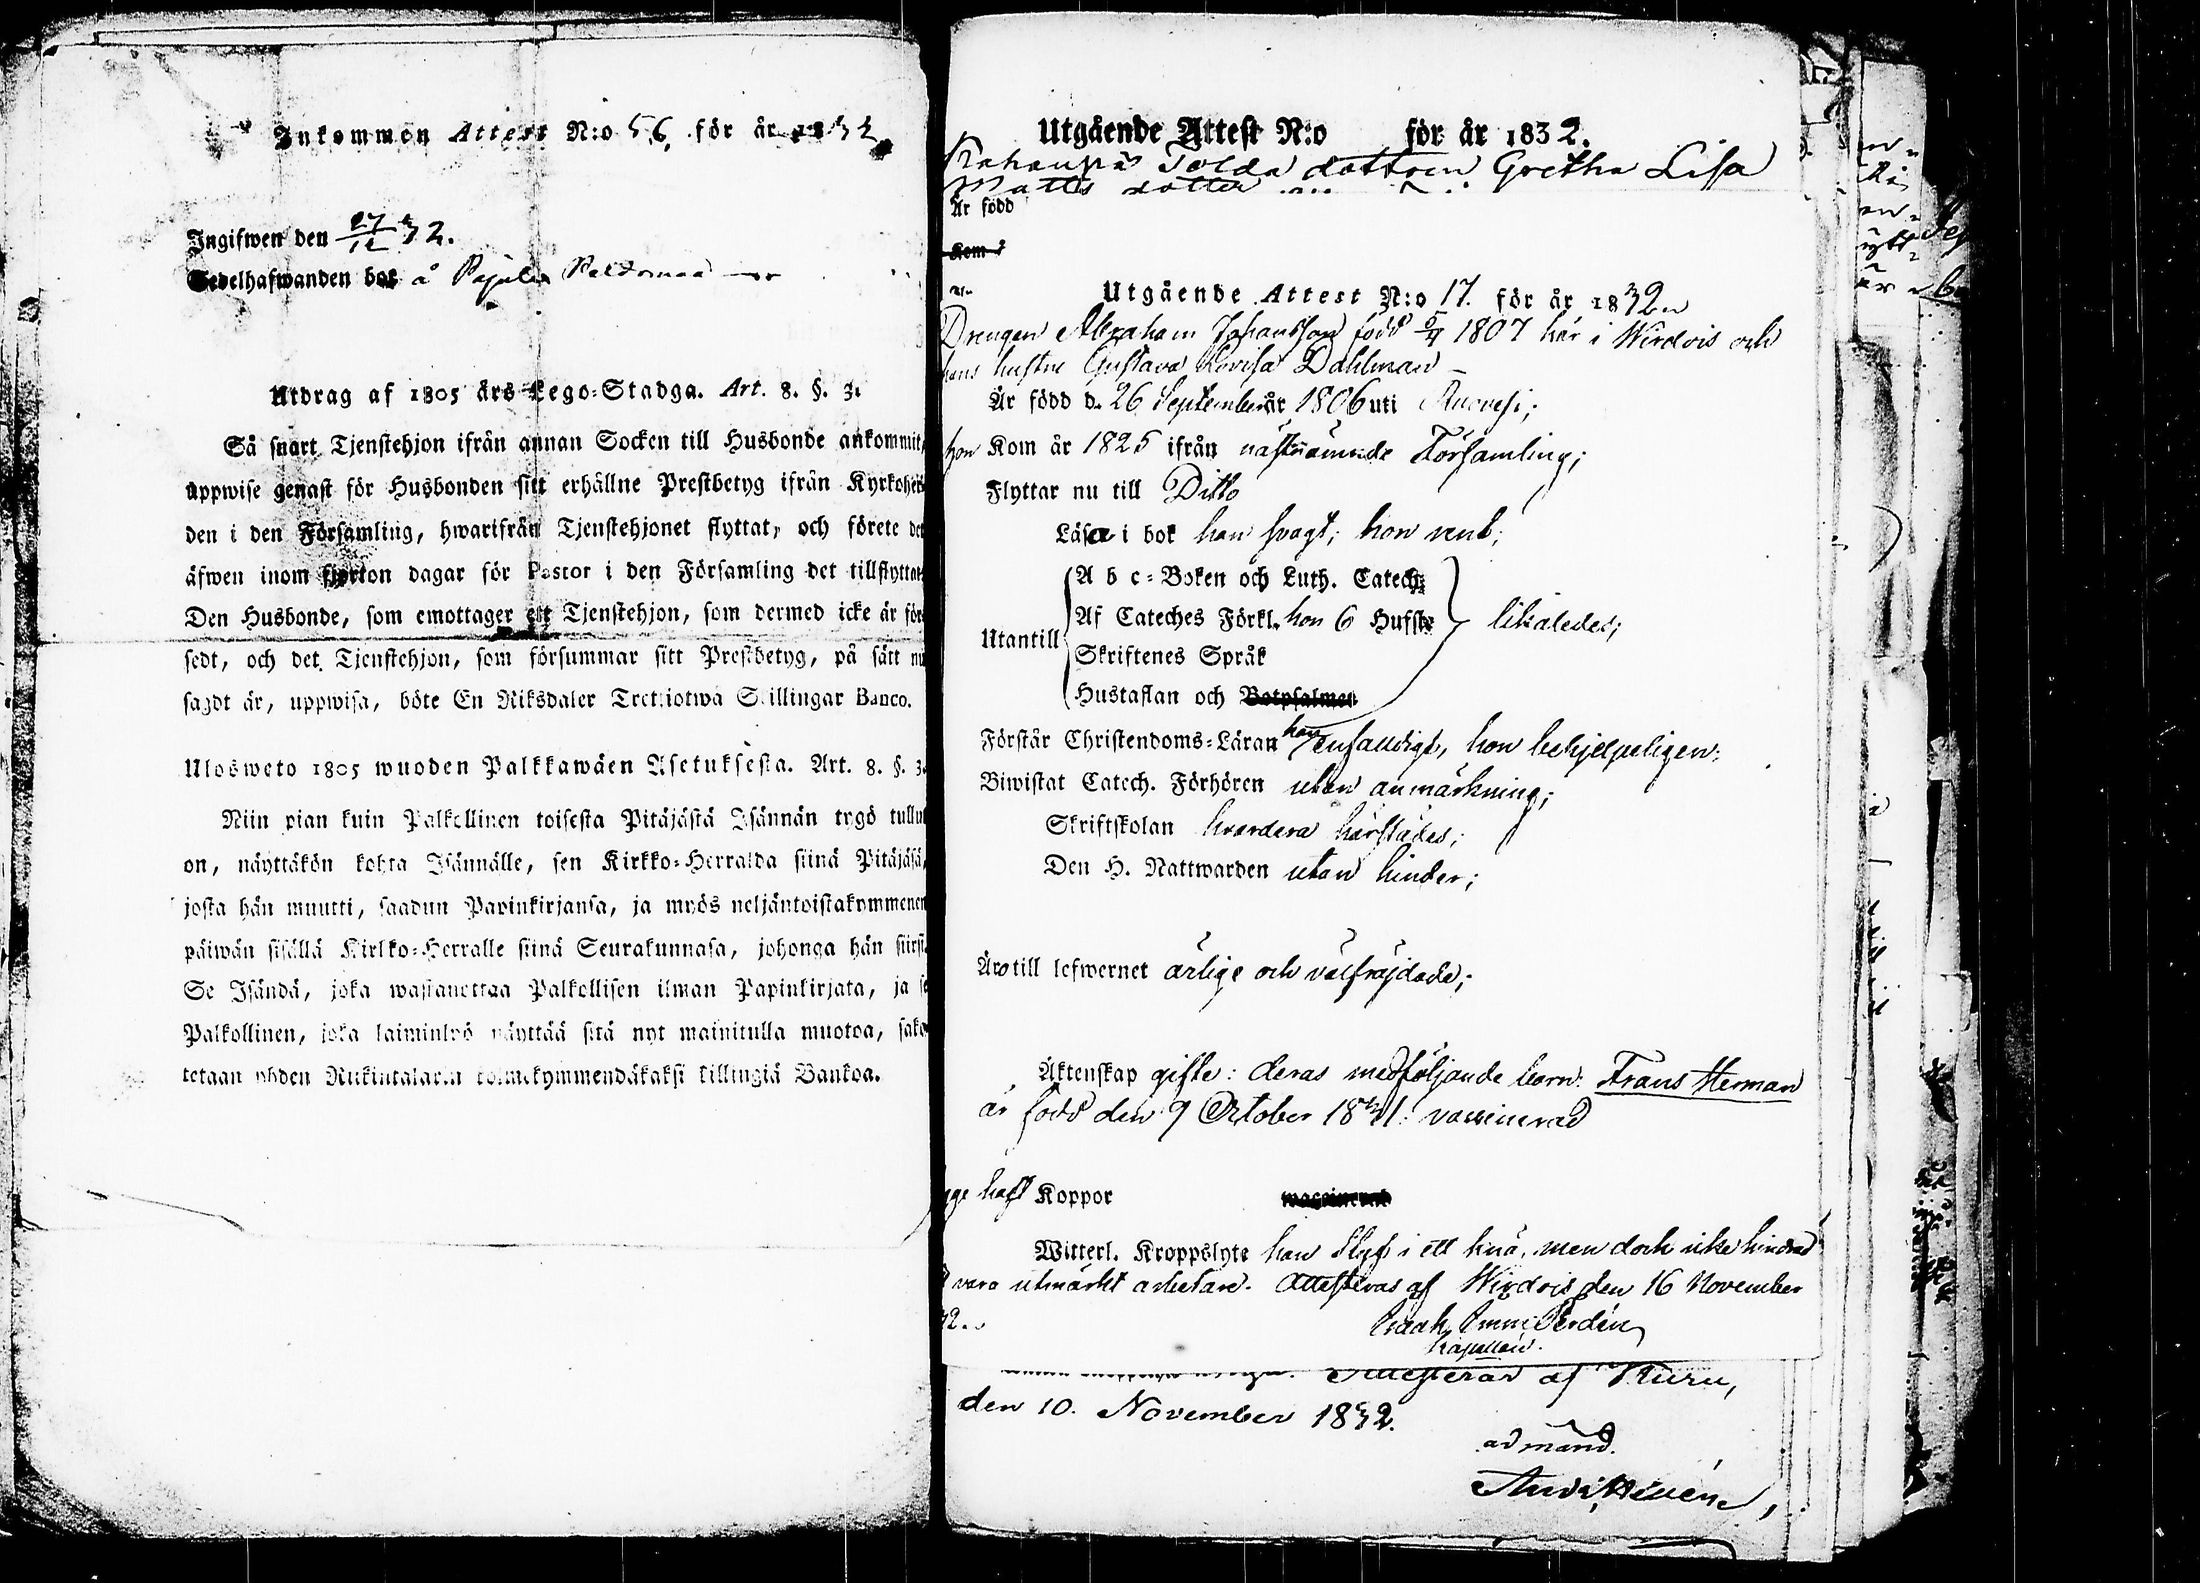 Inkommen Attest N:o 56. för år 1832.
Ingifwen den 27/12 32.
Sedelhafwanden bor å Pajula
Utdrag af 1805 års Lego-Stadga. Art. 8. §. 3.
Så snart Tjenstehjon ifrån annan Socken till Husbonde ankommit,
uppwise genast för Husbonden sitt erhållne Prestbetyg ifrån Kyrkoher
den i den Församling, hwarifrån Tjenstehjonet flyttat, och förete det
äfwen inom fjorton dagar för Pastor i den Församling det tillflyttat.
Den Husbonde, som emottager ett Tjenstehjon, som dermed icke är för
sedt, och det Tjenstehjon, som försummar sitt Prestbetyg, på sätt nu
sagdt är, uppwisa, böte En Riksdaler Trettiotwå Skillingar Banco.
Ulosweto 1805 wuoden Palkkawäen Asetuksesta. Art. 8. §. 3.
Niin pian kuin Palkollinen toisesta Pitäjästä Isännän tygö tullut
on, näyttäkön kohta Isännälle, sen Kirkko-Herralda siinä Pitäjäsä,
josta hän muutti, saadun Papinkirjansa, ja myös neljäntoistakymmenen
päiwän sisällä Kirkko-Herralle siinä Seurakunnasa, johonga hän siirsi.
Se Isändä, joka wastanottaa Palkollisen ilman Papinkirjata, ja se
Palkollinen, joka laiminlyö näyttää sitä nyt mainitulla muotoa, sako
tetaan yhden Rikintalarin kolmekymmendäkaksi killingiä Bankoa.
Utgående Attest N:o för år 1832.
dottren Gretha Lisa
Matts dotter
Är född
Kom
Utgående Attest N:o 17. för år 1832.
Drengen Abraham Johansson född 5/4 1807 här i Wirdois och
hans hustru Gustava Lovisa Dahlman
Är född d. 26 September år 1806 uti Ruovesi;
hon Kom år 1825 ifrån nästnämnde Församling;
Flyttar nu till Ditto
Läsa i bok han svagt; hon rent;
A b c-Boken och Luth. Catech.
Af Cateches Förkl. hon 6 Hufst. likaledes;
Utantill
Skriftenes Språk
Hustaflan och Botpsalmen
Förstår Christendoms-Läran han enfaldigt, hon behjelpeligen;
Biwistat Catech. Förhören utan anmärkning;
Skriftskolan hvardera härstädes;
Den H. Nattwarden utan hinder;
Äro till lefwernet ärlige och välfrejdade;
Äktenskap gifte: deras medföljande barn: Frans Herman
är född den 9 October 1831: vaccinerad
haft Koppor
Witterl. Kroppslyte han Styf i ett knä, men dock icke hindrad
vara utmärkt arbetare. Attesteras af Wirdois den 16 November
32.
Isaak Perdén
kapellan.
Attesterar af Kuru,
den 10. November 1832.
ad mand.